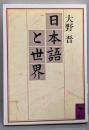 大野 晋
日本語と世界